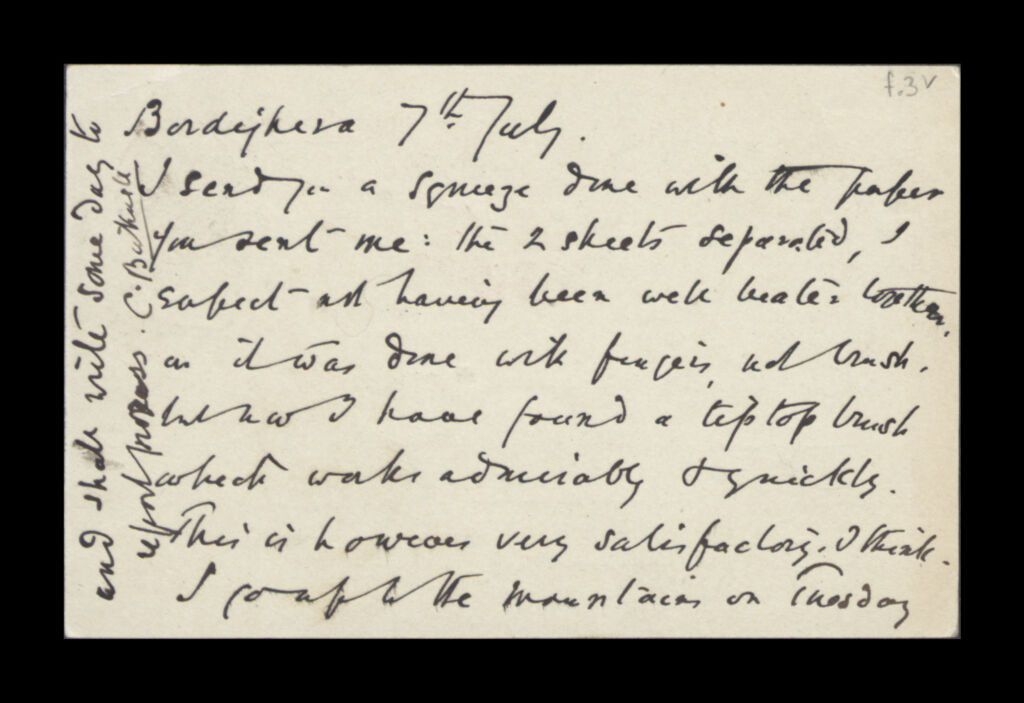 f.3v
Bordighera 7th July.
I send you a squeeze done with the paper
you sent me: the 2 sheets separated, I
expect not having been well beaten together,
as it was done with fingers, not brush.
but now I have found a tiptop brush
which works admirably & quickly.
This is however very satisfactory. I think.
I go up to the mountains on Tuesday
and shall write some day to
report progress. C. Bicknell